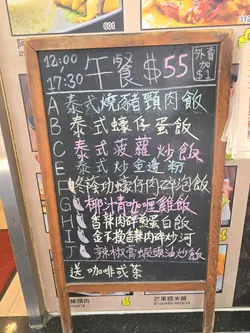 801
12:00
17:30 午餐 $55 外賣加$1
A 泰式燒豬頸肉飯
B 泰式蠔仔蛋飯
C 泰式菠蘿炒飯
E 泰式炒金邊粉
F 冬陰功蠔仔肉碎泡飯
G 椰汁青咖喱雞飯
H 香辣肉碎煎蛋白飯
I 金不換香辣肉碎炒河
J 辣椒膏蜆豉油炒飯
送 咖啡或茶
豬頸肉
芒果糯米飯